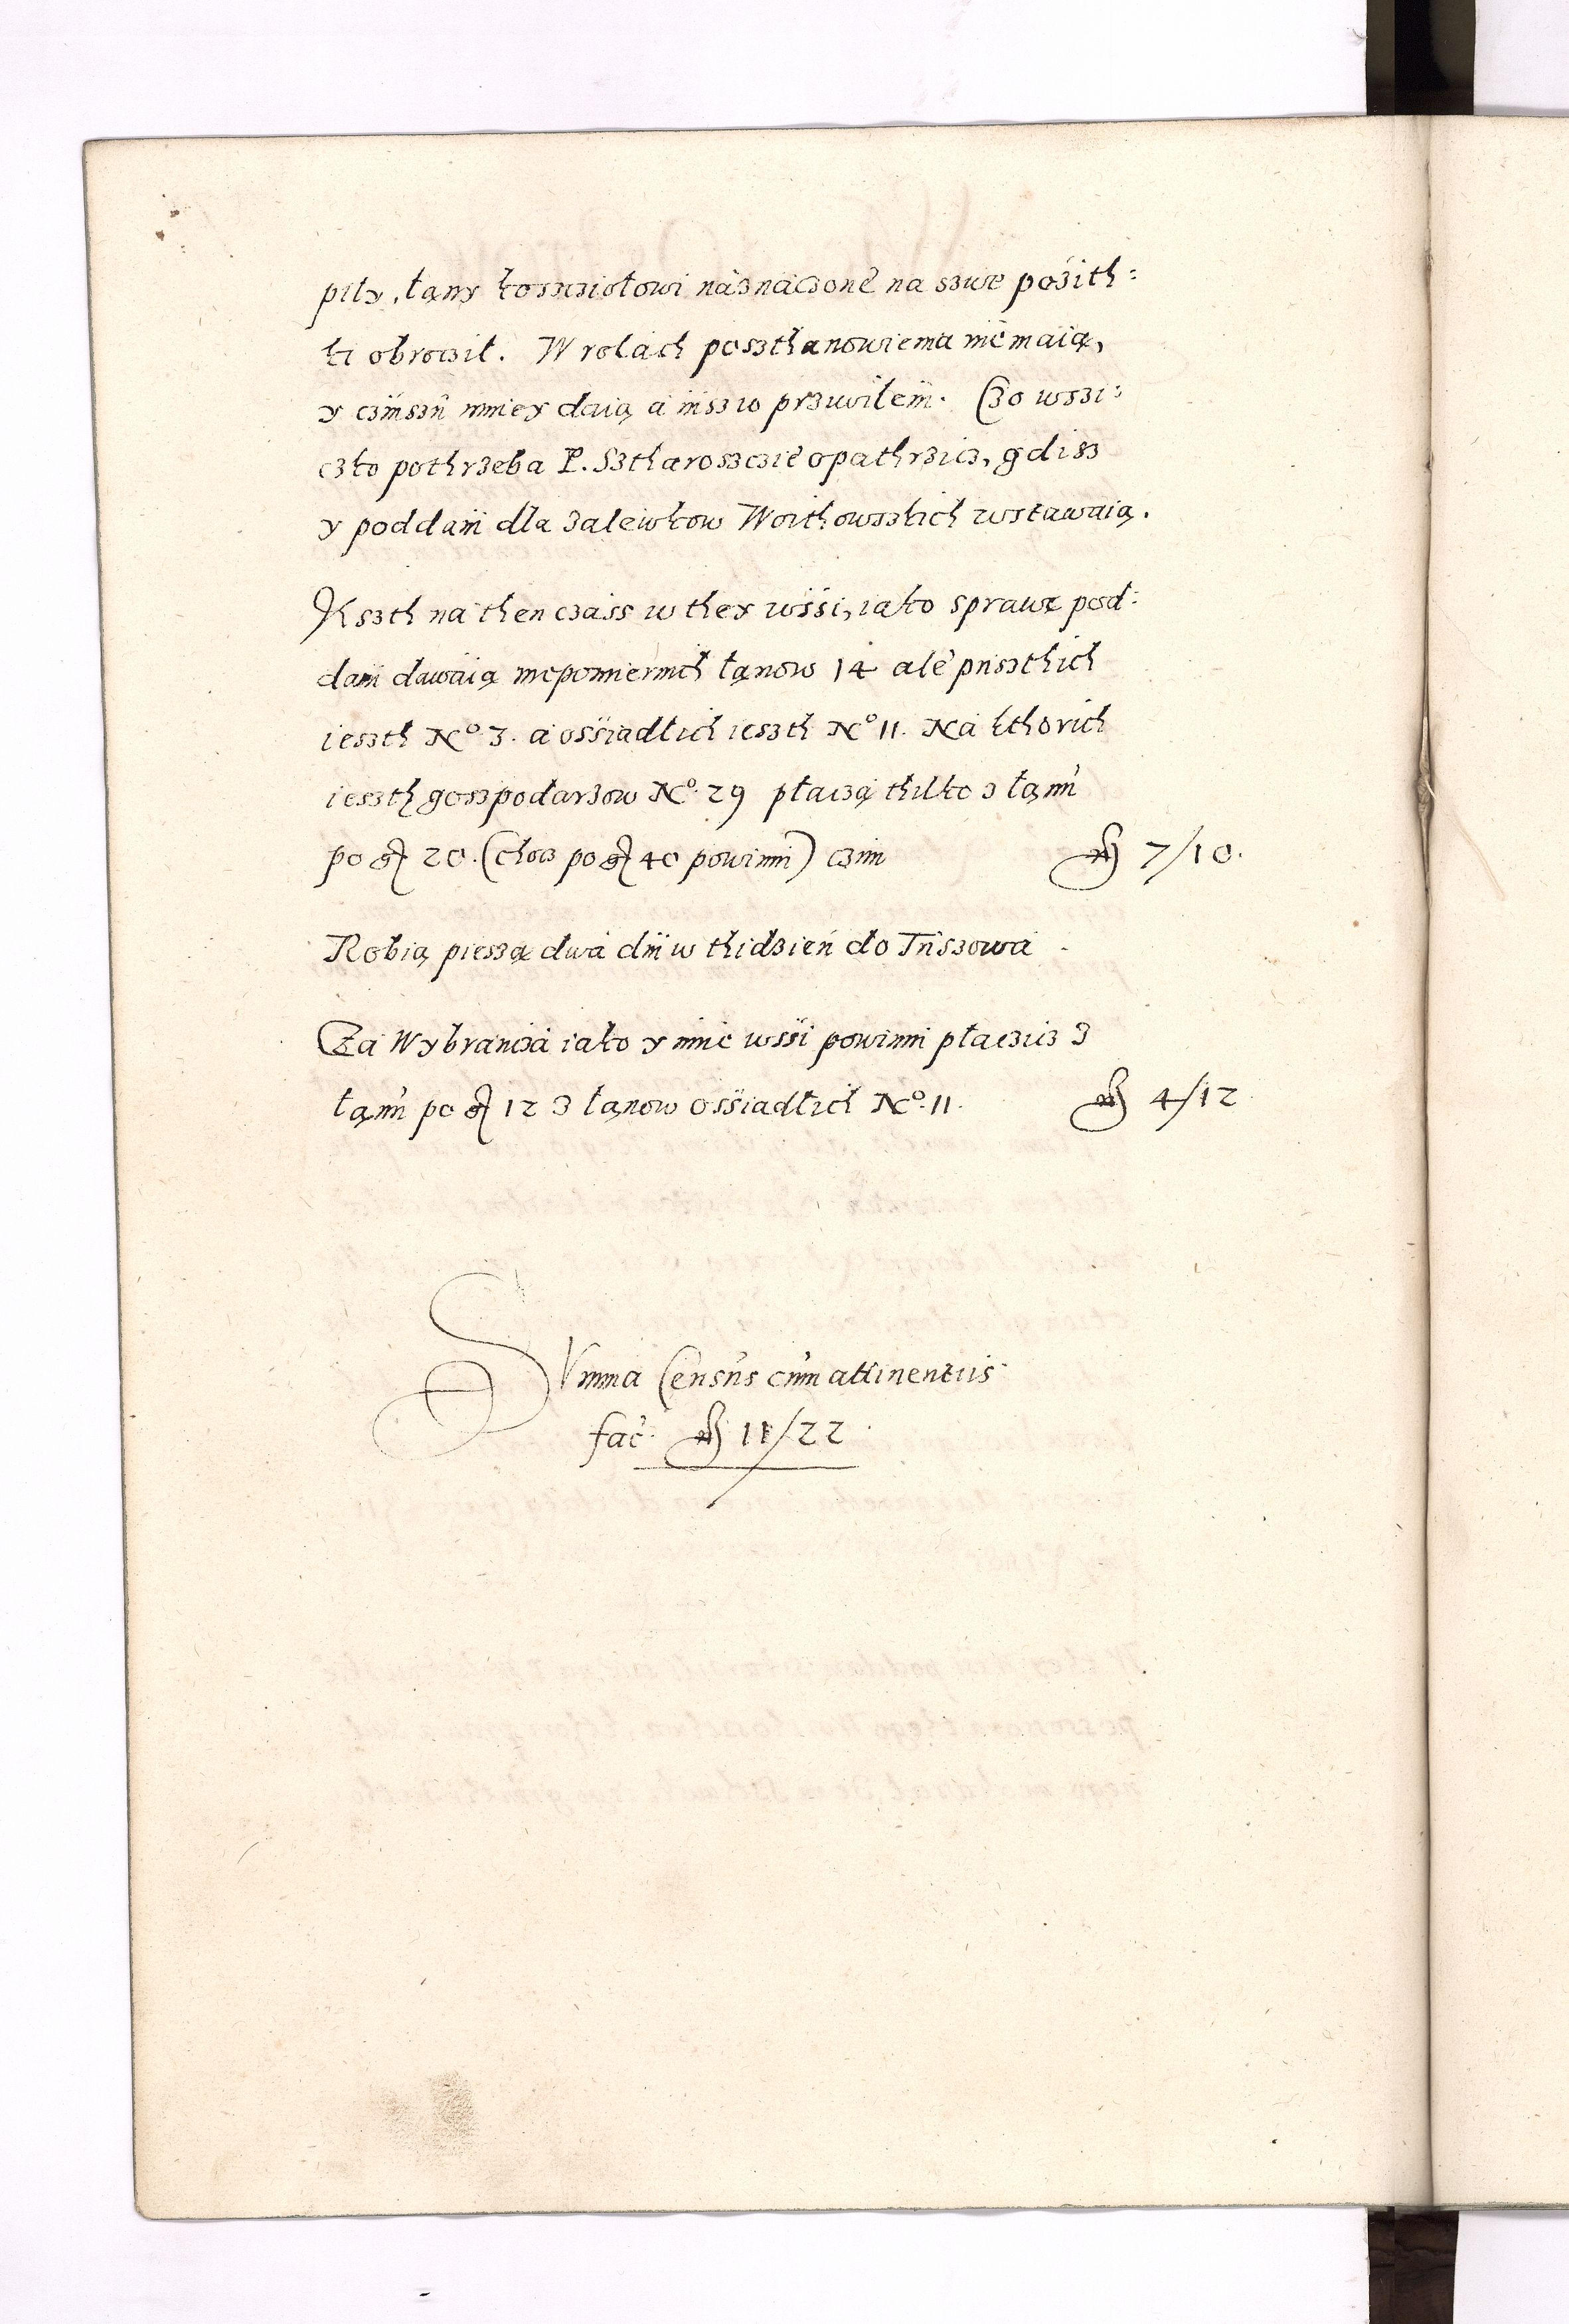 pily, łąny koscziołowi náznáczoné na szwe pożith=
ki obrocził. W rolách poszthanowienia nié máią,
y czinszu mniey daią á niszw przuwileiu. Czo wszi=
czko pothrzeba P. Sztharoszczie opathrzicz, gdisz
y poddani dla zalewkow Woithowszkich wstawaią.
Jeszth na then czáss w they wssi, iako sprawę pod=
dani dawáią niepomiernich łąnow 14 alé pusztkich
ieszth No 3. á ossiadłich ieszth No 11. Ná kthorich
ieszth goszpodarzow No. 29 płaczą thilko z łąnu
po gl 20. (chocz po gl 40 powinni) czini fl 7/10.
Robią pieszą dwá dni w thidzień do Tuszowá
Zá Wybráńcá iáko y inné wssi powinni płaczicz z
łąnu po gl 12 z łąnow ossiadłich No. 11. fl 4/12
SVmma Census cum attinentiis
fac. fl 11/22